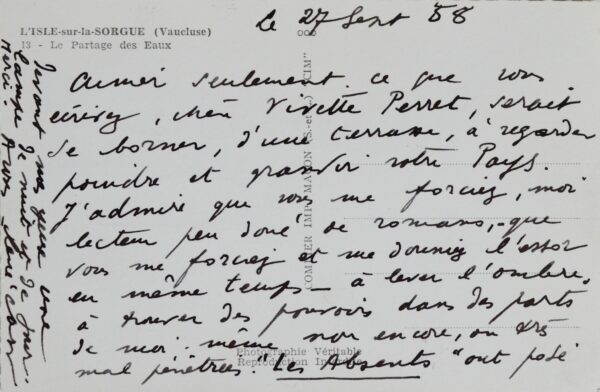 L'ISLE-sur-la-SORGUE (Vaucluse)
13 - Le Partage des Eaux
Le 27 Sept 58
Aimer seulement ce que vous
écrivez, chère Vivette Perret, serait
se borner, d'une terrasse, à regarder
poindre et grandir votre Pays.
J'admire que vous me forciez, moi
lecteur peu doué de romans, - que
vous me forciez et me donniez l'essor
en même temps - à lever l'ombre,
à trouver des pouvoirs dans des parts
de moi-même non encore, ou très
mal pénétrées. "Les Absents" ont posé
devant ma page une
lampe de nuit et de jour.
Merci. A vous
COMBIER IMPRIMEUR MACON (S.-et-L.) "CIM"
Photographie Véritable
Reproduction Interdite